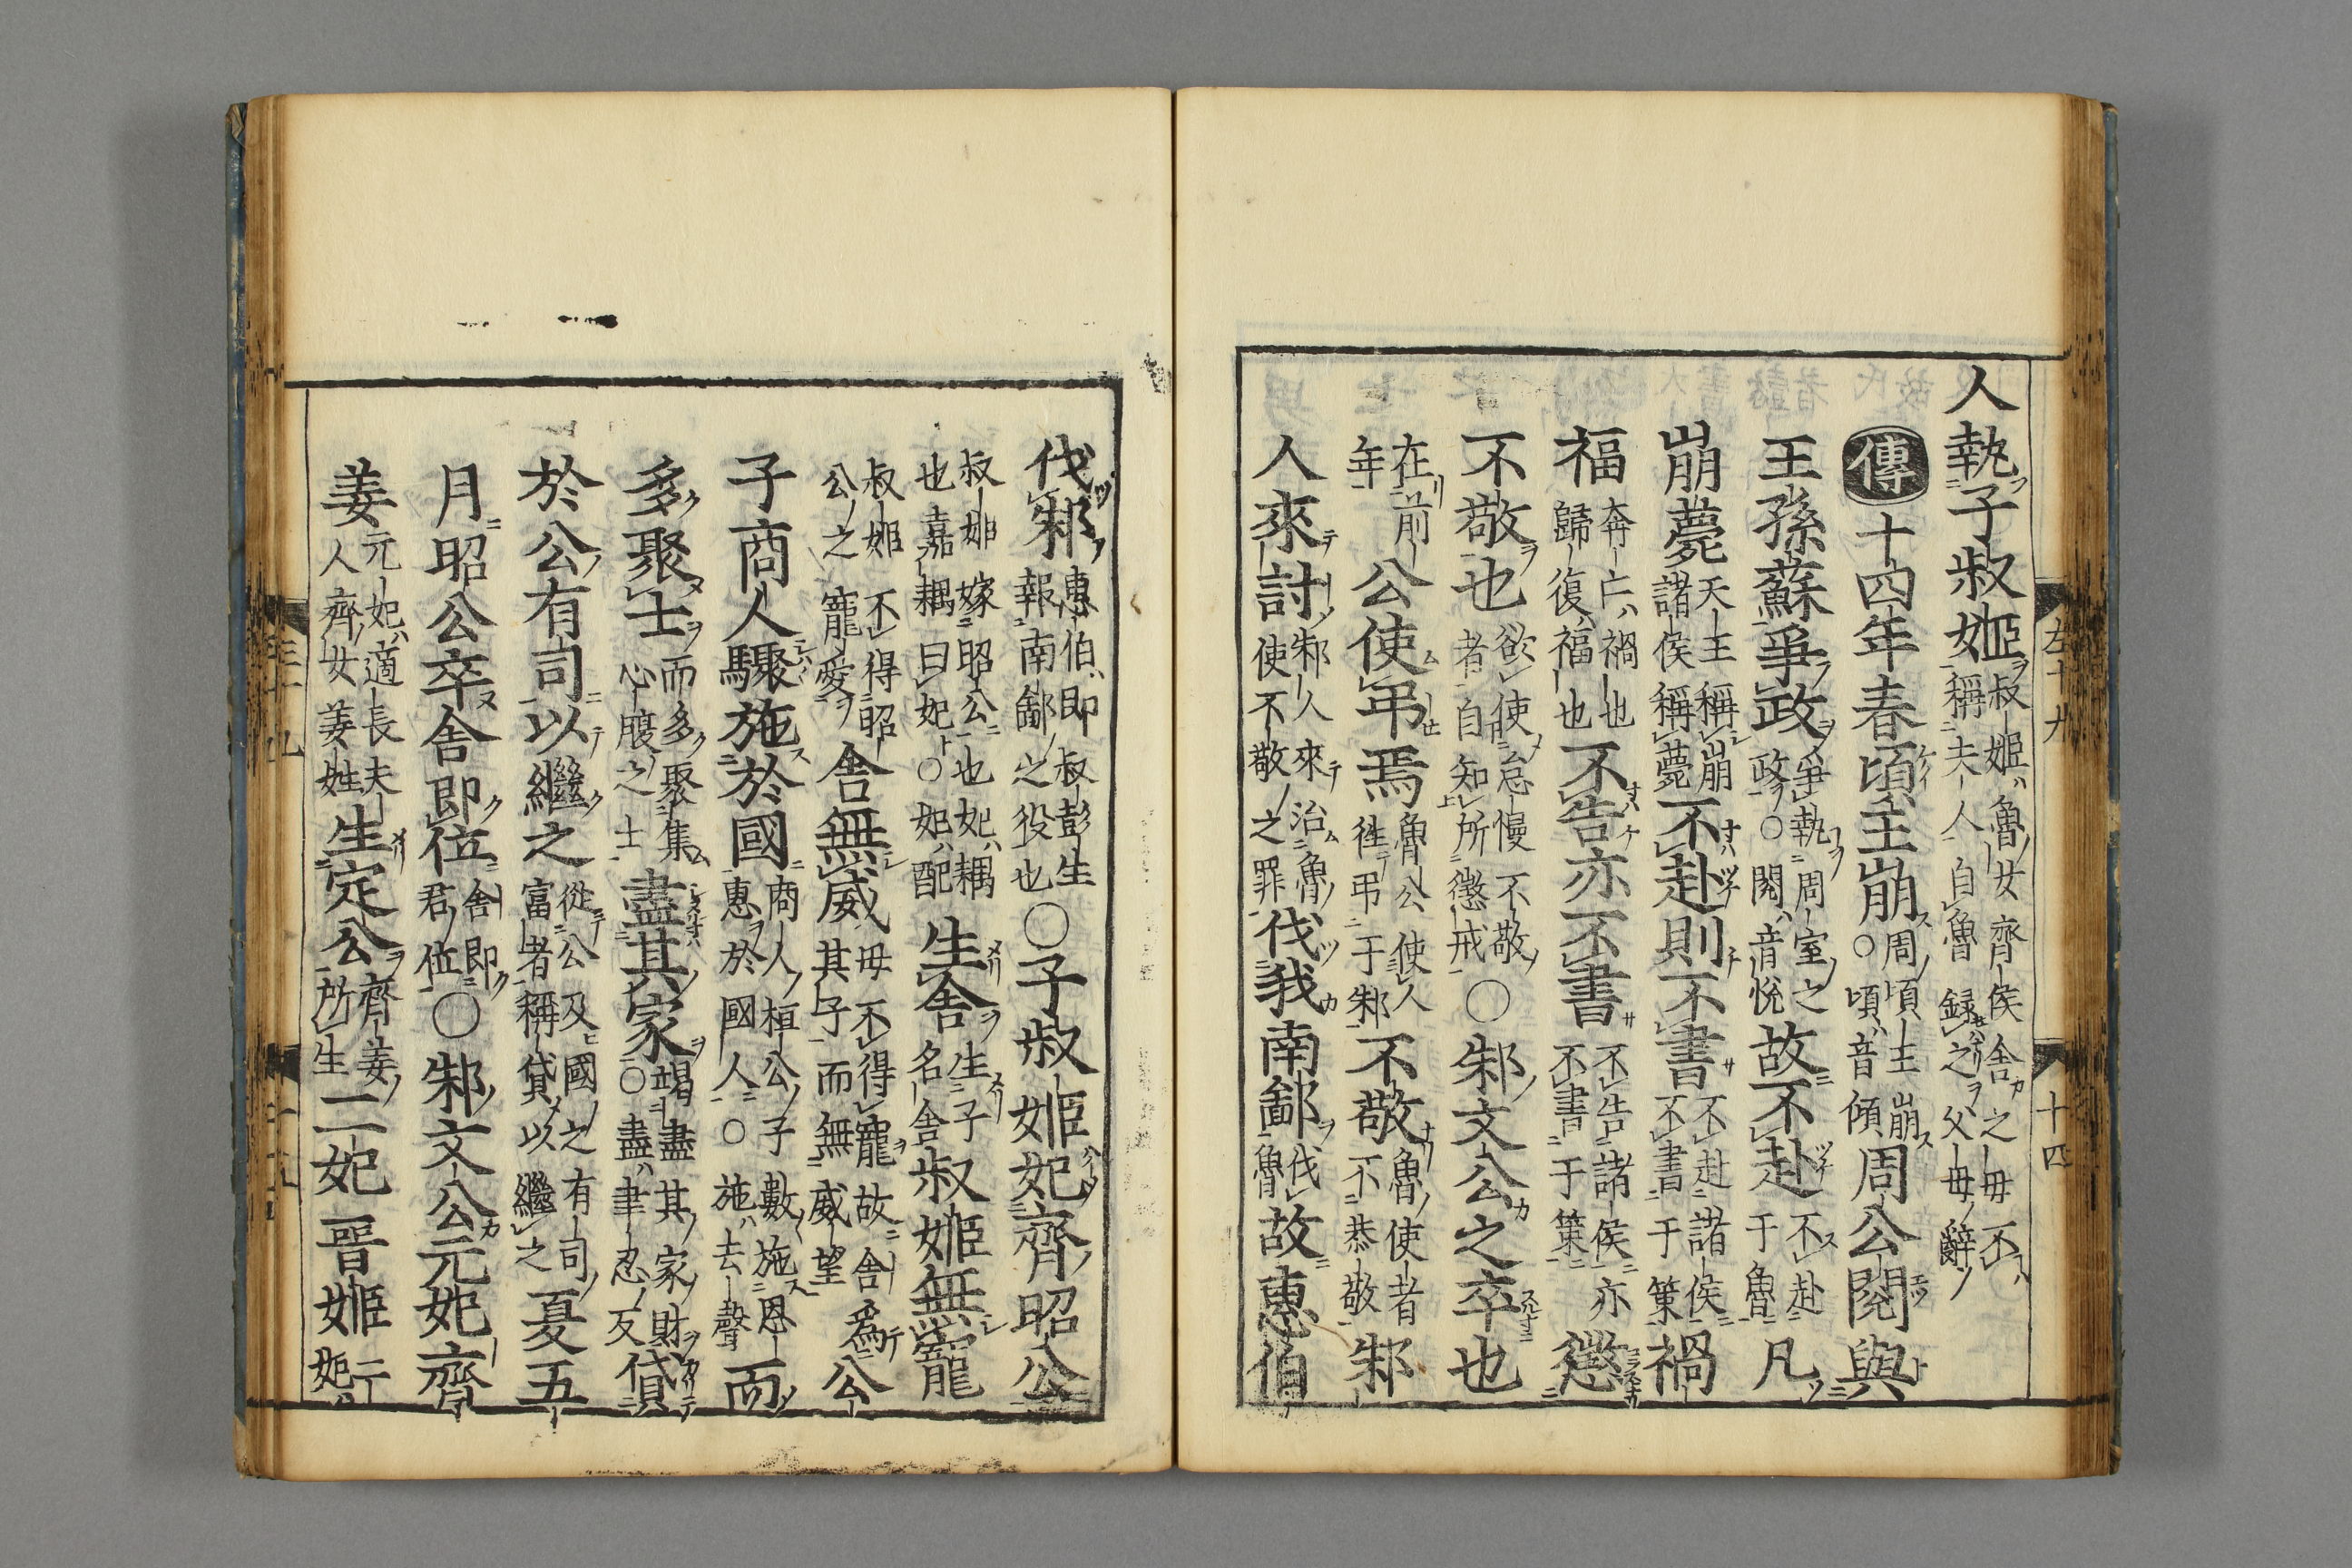 左十九 十四
人執子叔姬叔姬魯女齊侯舍之母不稱夫人自魯録之父母辭
傳十四年春頃王崩周頃王崩○頃音傾周公閱與
王孫蘇爭政爭執周室之政○閱音悅故不赴不赴于魯凡
崩薨天王稱崩諸侯稱薨不赴則不書不赴諸侯不書于策禍
福奔亡禍也歸復福也不告亦不書不告諸侯亦不書于策懲
不敬也欲使怠慢不敬者自知所懲戒○邾文公之卒也
在前年公使弔焉魯公使人徃弔于邾不敬魯使者不恭敬邾
人來討邾人來治魯使不敬之罪伐我南鄙伐魯故惠伯
伐邾惠伯即叔彭生報南鄙之役也○子叔姬妃齊昭公
叔姬嫁昭公也妃耦也嘉耦曰妃○妃配生舍生子名舍叔姬無寵
叔姬不得昭公之寵愛舍無威毋不得寵故舍其子而無威望爲公
子商人驟施於國商人桓公子數施恩惠於國人○施去聲而
多聚士而多聚集心腹之士盡其家竭盡其家財○盡聿忍反貸
於公有司以繼之從公及國之有司富者稱貸以繼之夏五
月昭公卒舍即位舍即君位○邾文公元妃齊
姜元妃適長夫人齊女姜姓生定公齊姜所生二妃晉姬二妃